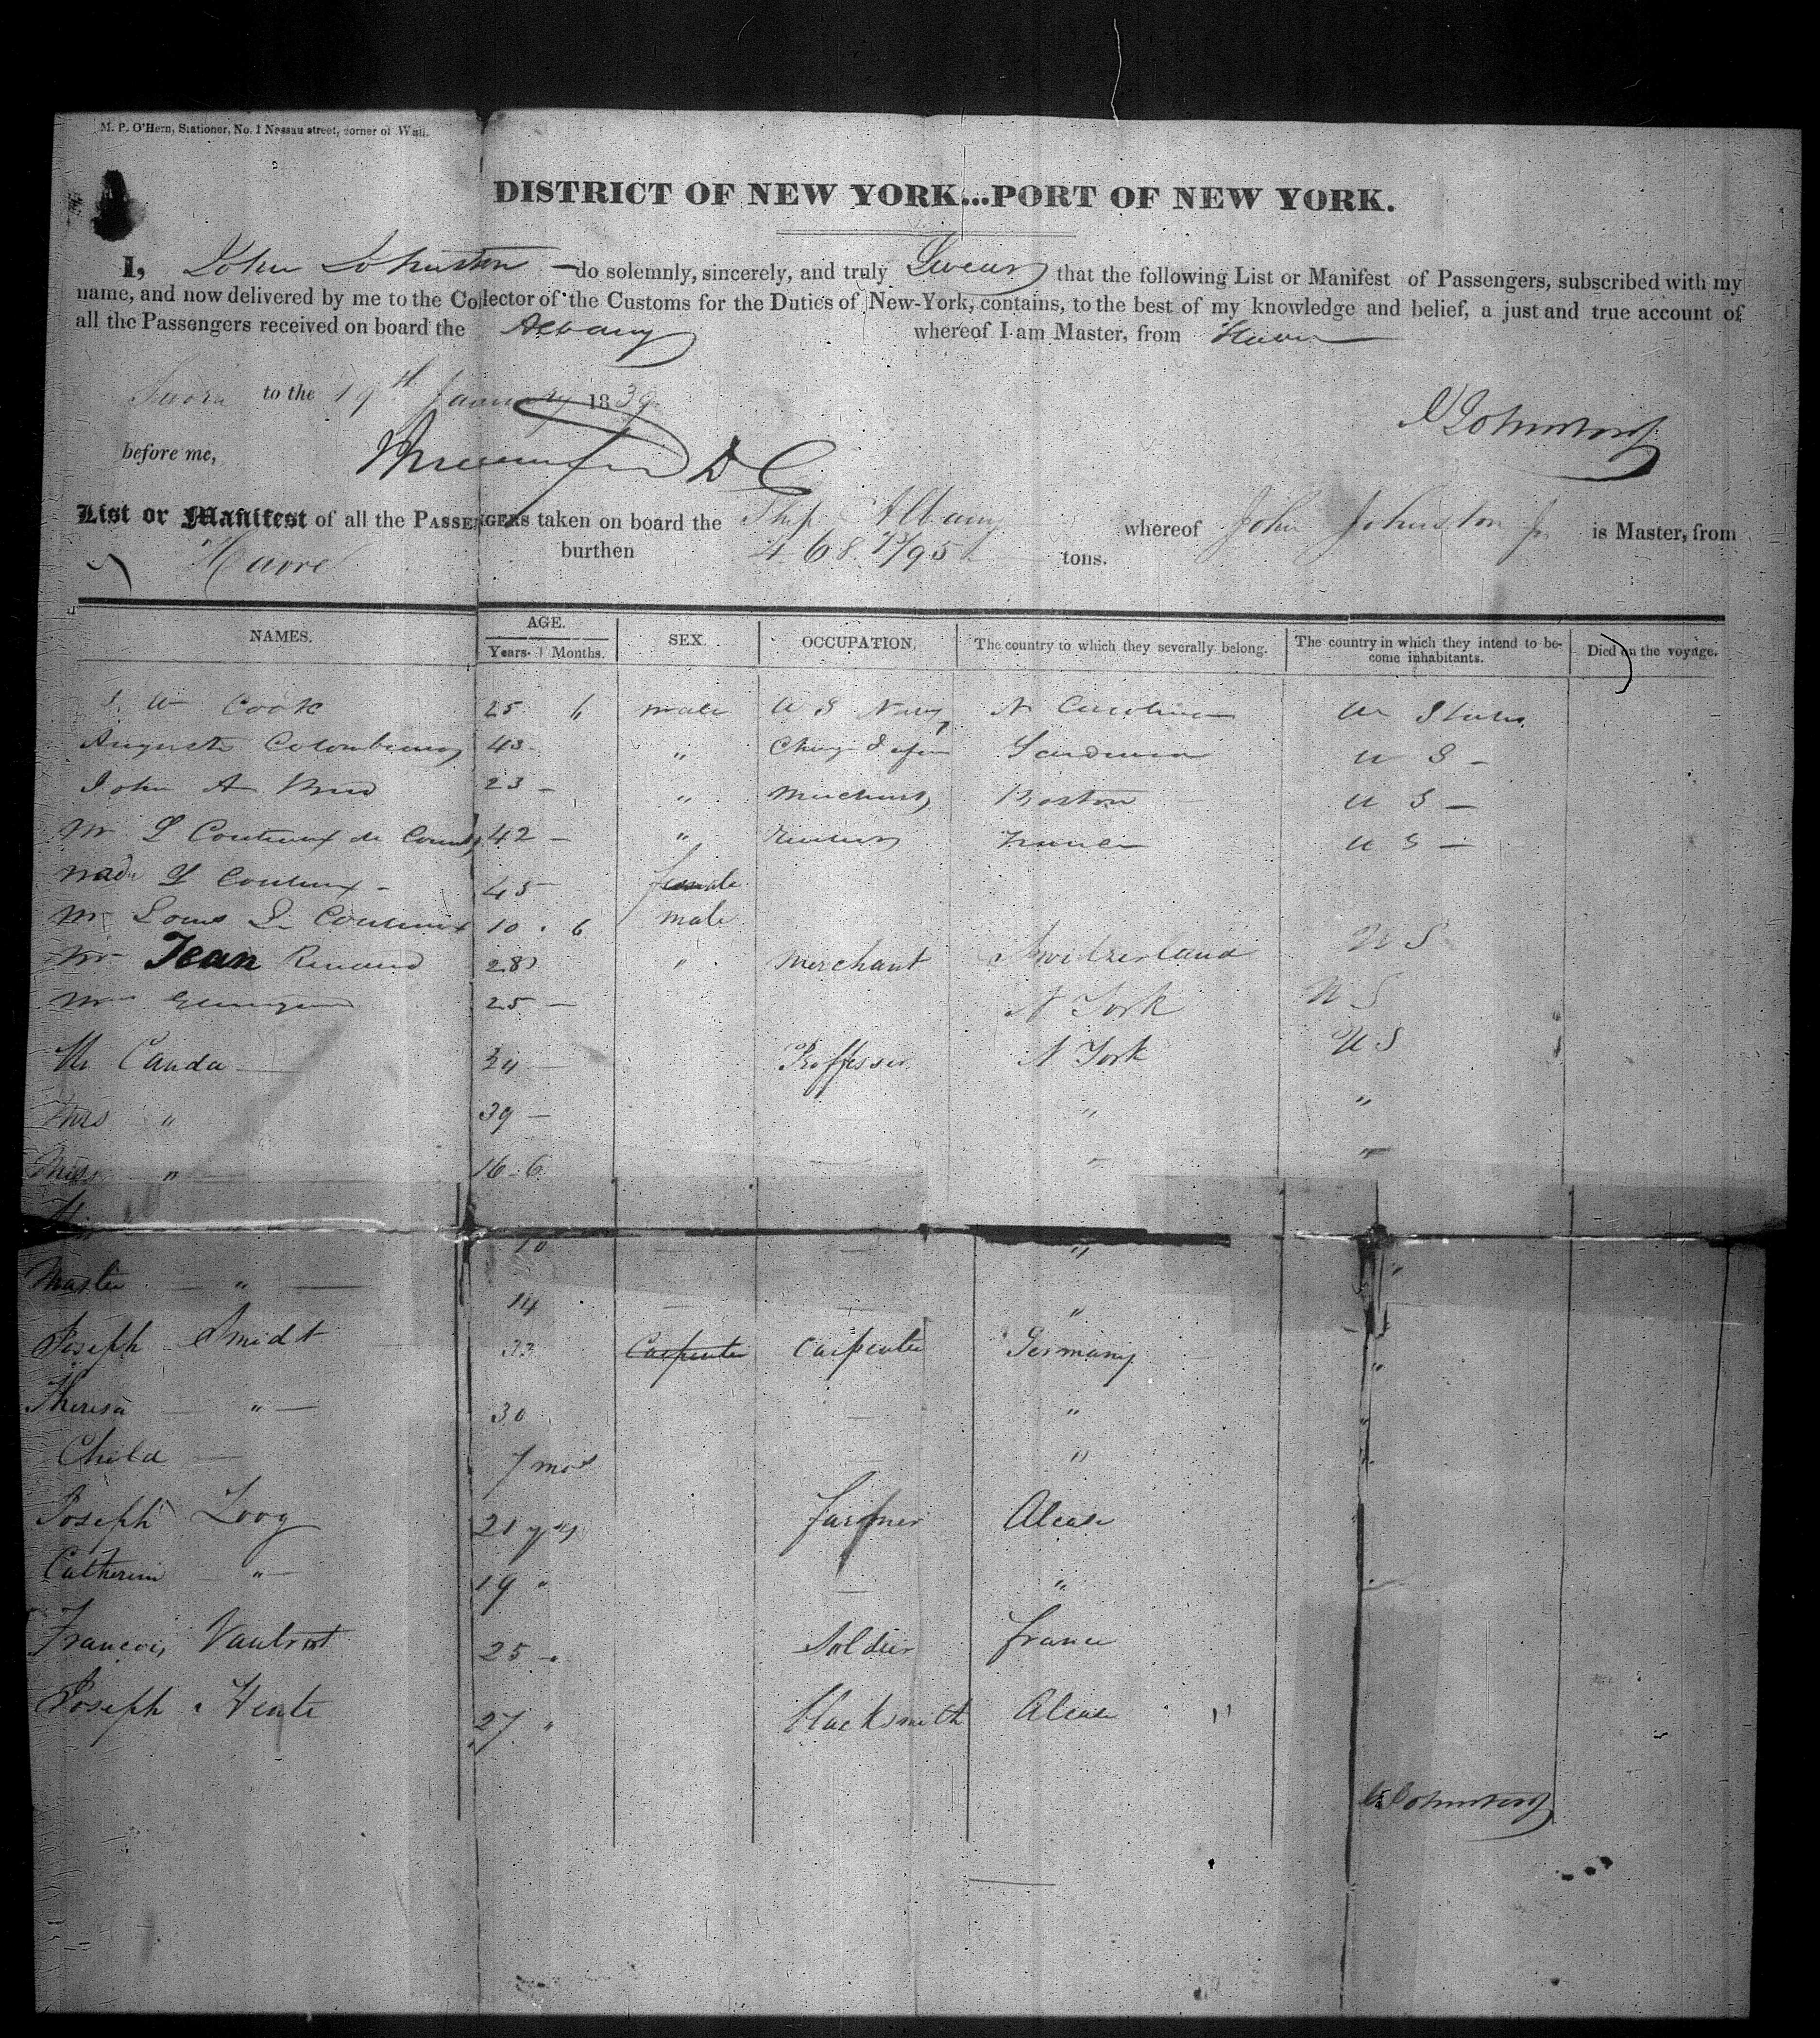 M. P. O'Hern, Stationer, No. 1 Nassau street, corner of Wall.
DISTRICT OF NEW YORK...PORT OF NEW YORK.
I, John Johnston do solemnly, sincerely, and truly Swear that the following List or Manifest of Passengers, subscribed with my
name, and now delivered by me to the Collector of the Customs for the Duties of New-York, contains, to the best of my knowledge and belief, a just and true account of
all the Passengers received on board the Albany whereof I am Master, from Havre
Sworn to the 19th January 1839
J Johnston
before me, D C
List or Manifest of all the PASSENGERS taken on board the Ship Albany whereof John Johnston Jr is Master, from
Havre burthen 468 75/95 tons.
NAMES. AGE. Years. Months. SEX. OCCUPATION. The country to which they severally belong. The country in which they intend to become inhabitants. Died on the voyage.
S. W Cook 25 6 male U S Navy N Carolina U States
Auguste Colombiano 43 " Charge d afair Sardinia U S -
John A 23 - " Merchant Boston U S -
Mr L Couteux de 42 - " France U S -
Made L Couteux - 45 female
Mr Louis L Couteux 10 . 6 male
Mr Jean Renaud 28 " Merchant Switzerland U S
25 - N York U S
Mr Canda 34 - Proffessor N York U S
Mrs " 39 - " "
Miss " 16 6 " "
10 "
Master " 14 " "
Joseph Smidt 33 Carpenter Carpenter Germany "
Theresa " 30 " "
Child 7 mos " "
Joseph Loog 21 yrs farmer Alcase
Catherine " 19 " "
Francois Vautrot 25 Soldier france
Joseph Hente 27 " blacksmith Alcase "
J Johnston